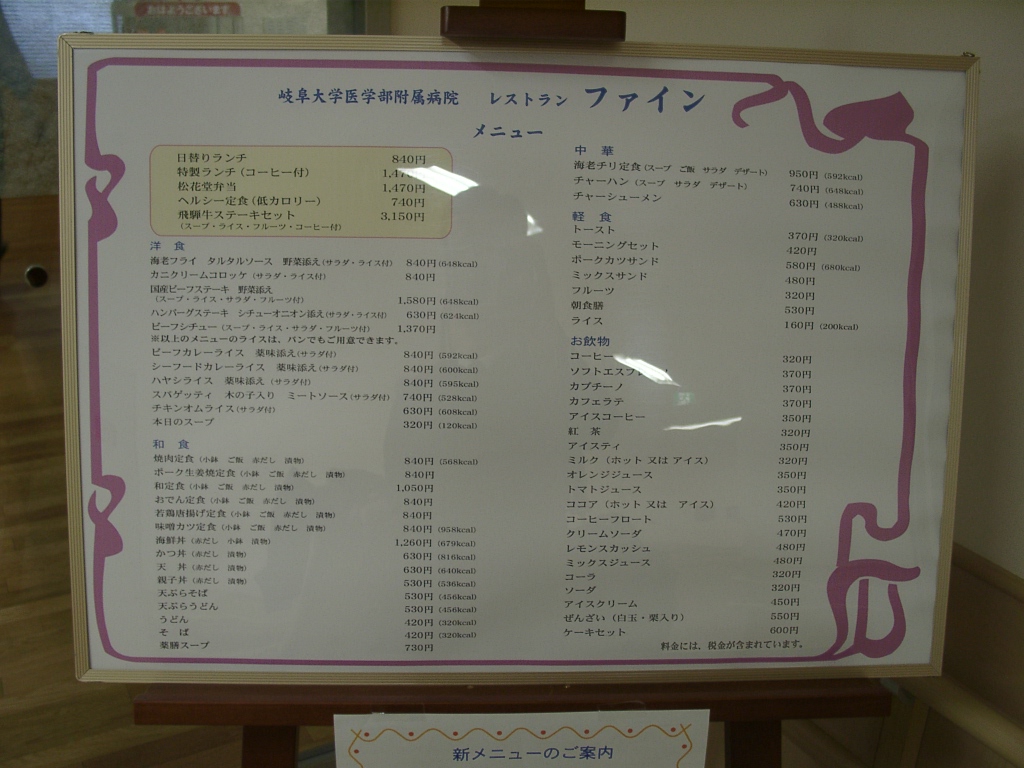 おはようございます
岐阜大学医学部附属病院 レストラン ファイン
メニュー
日替りランチ 840円
特製ランチ(コーヒー付)
松花堂弁当 1,470円
ヘルシー定食(低カロリー) 740円
飛騨牛ステーキセット 3,150円
(スープ・ライス・フルーツ・コーヒー付)
洋 食
海老フライ タルタルソース 野菜添え(サラダ・ライス付) 840円(648kcal)
カニクリームコロッケ(サラダ・ライス付) 840円
国産ビーフステーキ 野菜添え
(スープ・ライス・サラダ・フルーツ付) 1,580円(648kcal)
ハンバーグステーキ シチューオニオン添え(サラダ・ライス付) 630円(624kcal)
ビーフシチュー(スープ・ライス・サラダ・フルーツ付) 1,370円
※以上のメニューのライスは、パンでもご用意できます。
ビーフカレーライス 薬味添え(サラダ付) 840円(592kcal)
シーフードカレーライス 薬味添え(サラダ付) 840円(600kcal)
ハヤシライス 薬味添え(サラダ付) 840円(595kcal)
スパゲッティ 木の子入り ミートソース(サラダ付) 740円(528kcal)
チキンオムライス(サラダ付) 630円(608kcal)
本日のスープ 320円(120kcal)
和 食
焼肉定食(小鉢 ご飯 赤だし 漬物) 840円(568kcal)
ポーク生姜焼定食(小鉢 ご飯 赤だし 漬物) 840円
和定食(小鉢 ご飯 赤だし 漬物) 1,050円
おでん定食(小鉢 ご飯 赤だし 漬物) 840円
若鶏唐揚げ定食(小鉢 ご飯 赤だし 漬物) 840円
味噌カツ定食(小鉢 ご飯 赤だし 漬物) 840円(958kcal)
海鮮丼(赤だし 小鉢 漬物) 1,260円(679kcal)
かつ丼(赤だし 漬物) 630円(816kcal)
天 丼(赤だし 漬物) 630円(640kcal)
親子丼(赤だし 漬物) 530円(536kcal)
天ぷらそば 530円(456kcal)
天ぷらうどん 530円(456kcal)
うどん 420円(320kcal)
そ ば 420円(320kcal)
薬膳スープ 730円
中 華
海老チリ定食(スープ ご飯 サラダ デザート) 950円(592kcal)
チャーハン(スープ サラダ デザート) 740円(648kcal)
チャーシューメン 630円(488kcal)
軽 食
トースト 370円(320kcal)
モーニングセット 420円
ポークカツサンド 580円(680kcal)
ミックスサンド 480円
フルーツ 320円
朝食膳 530円
ライス 160円(200kcal)
お飲物
コーヒー 320円
ソフトエスプレッソ 370円
カプチーノ 370円
カフェラテ 370円
アイスコーヒー 350円
紅 茶 320円
アイスティ 350円
ミルク(ホット 又は アイス) 320円
オレンジジュース 350円
トマトジュース 350円
ココア(ホット 又は アイス) 420円
コーヒーフロート 530円
クリームソーダ 470円
レモンスカッシュ 480円
ミックスジュース 480円
コーラ 320円
ソーダ 320円
アイスクリーム 450円
ぜんざい(白玉・栗入り) 550円
ケーキセット 600円
料金には、税金が含まれています。
新メニューのご案内